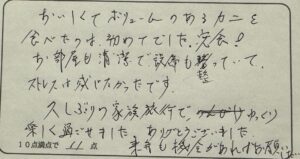 おいしくてボリュームのあるカニを
食べたのは、初めてでした。完食!
お部屋も清潔で設備も整っていて、
ストレスは感じなかったです。
久しぶりの家族旅行で、ゆっくり
楽しく過ごせました。ありがとうございました
10点満点で 11 点 来年も機会があればお願いし